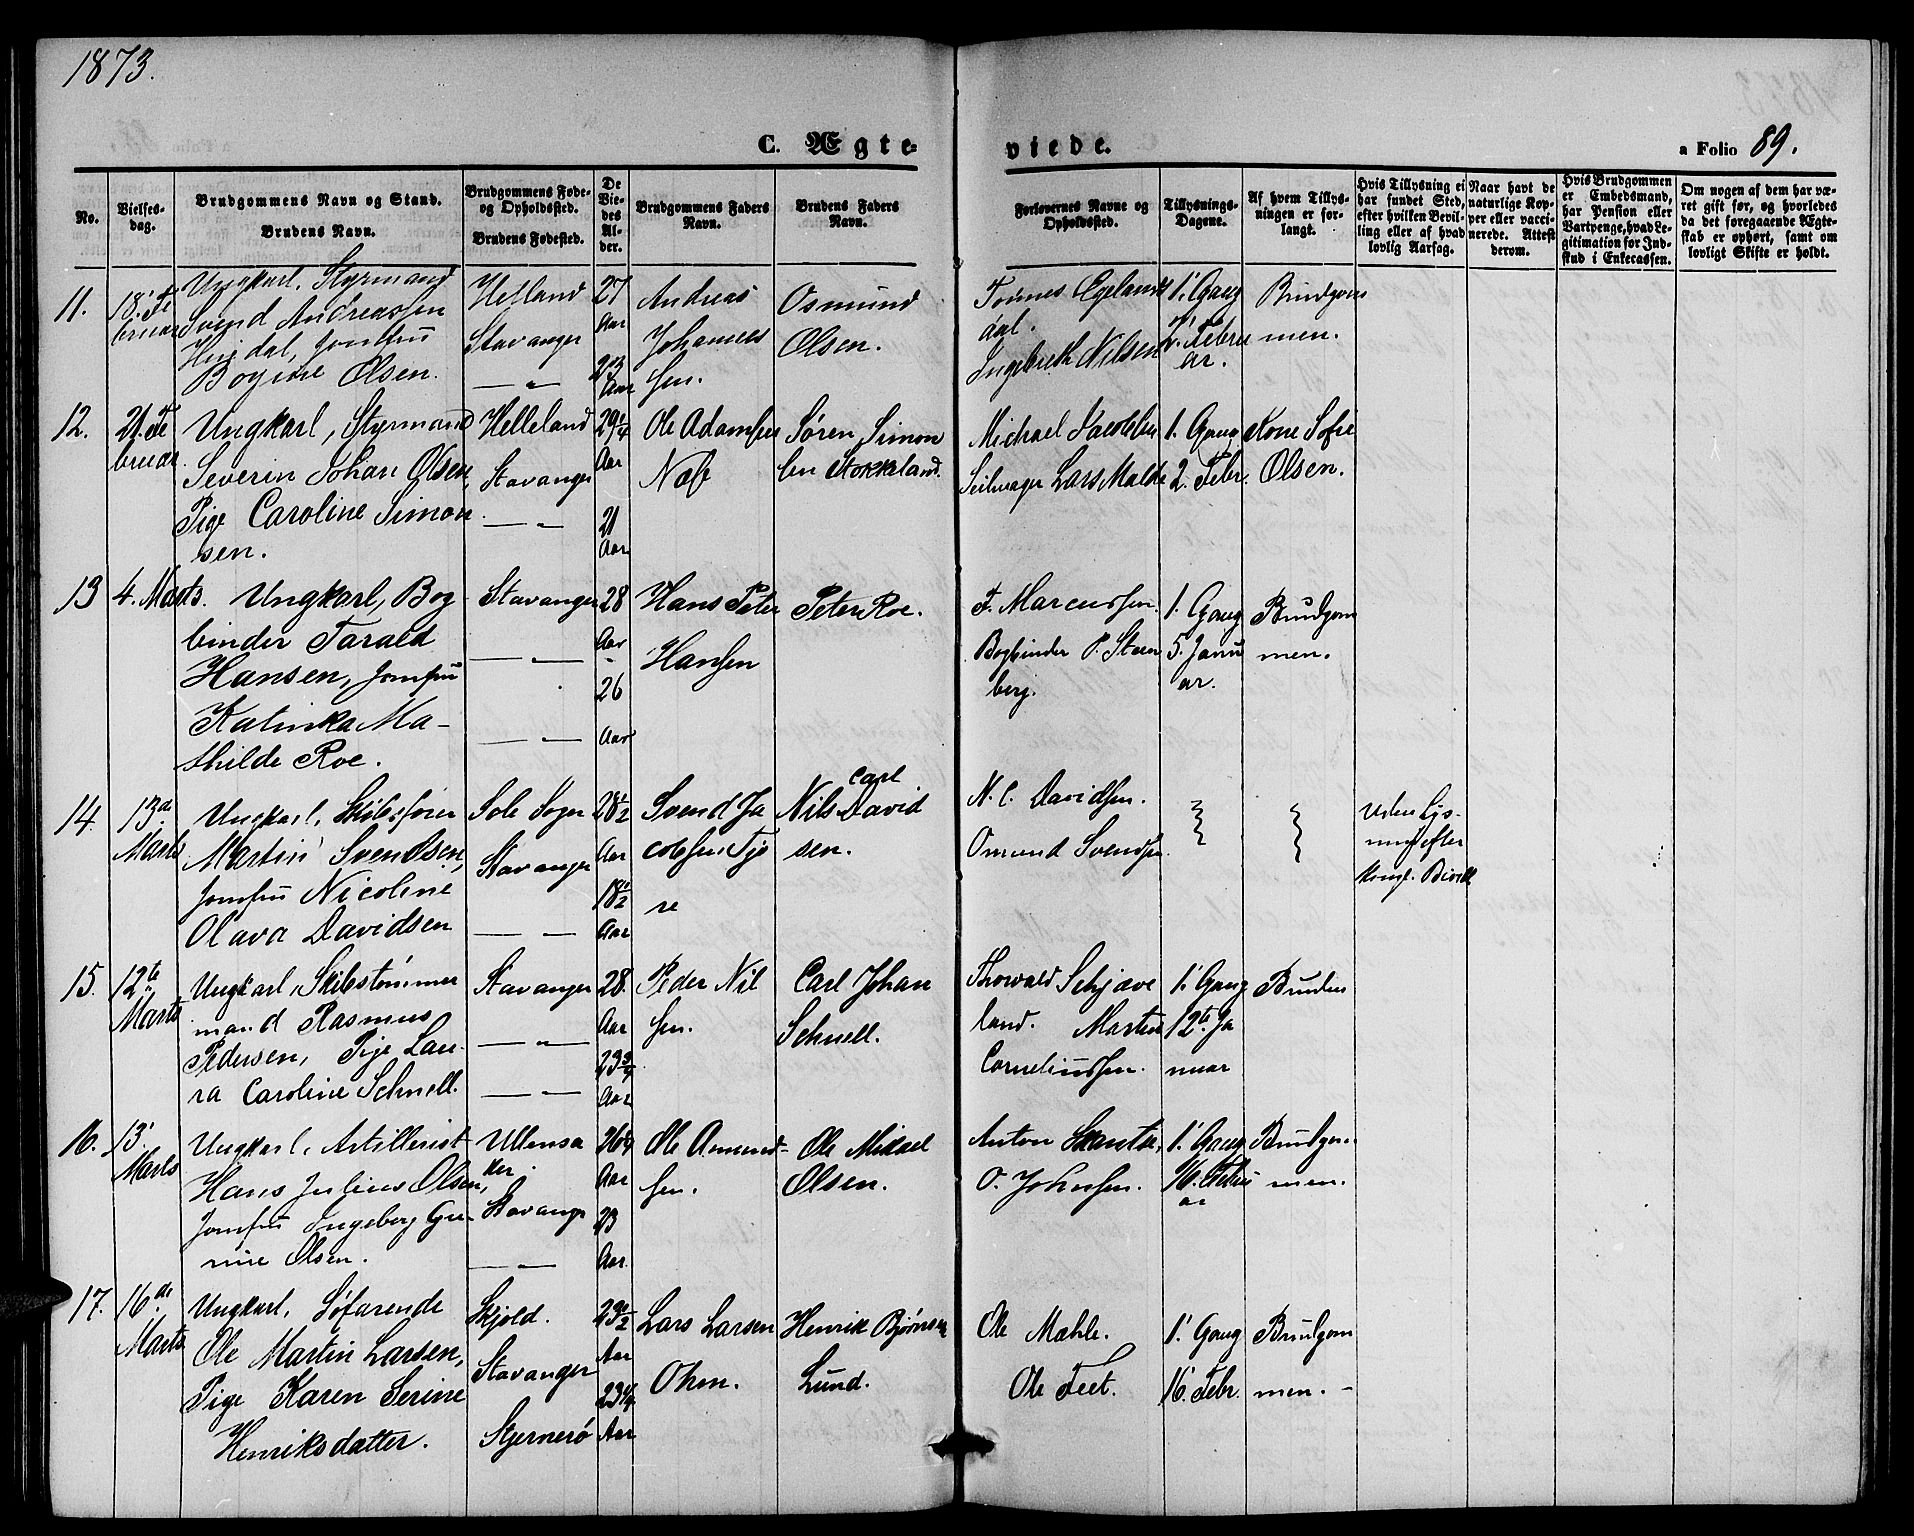 1873.
C. Ægteviede.
a Folio 89.
No.
Vielses-dag.
Brudgommens Navn og Stand.
Brudens Navn.
Brudgommens Føde- og Opholdssted.
Brudens Fødested.
De Viedes Alder.
Brudgommens Faders Navn.
Brudens Faders Navn.
Forlovernes Navne og Opholdssted.
Tillysnings-Dagene.
Af hvem Tillysningen er forlangt.
Hvis Tillysning ei har fundet Sted, efter hvilken Bevilling eller af hvad lovlig Aarsag.
Naar havt de naturlige Kopper eller vaccinerede. Attest derom.
Hvis Brudgommen er Embedsmand, har Pension eller Vartpenge, hvad Legitimation for Indskud i Enkecassen.
Om nogen af dem har været gift før, og hvorledes da det foregaaende Ægteskab er ophørt, samt om lovligt Skifte er holdt.
11.
18' Februar
Ungkarl, Styrmand
Svend Andreassen
Jomfru
Bogine Olsen.
Helland
Stavanger
— " —
27 Aar
23 Aar
Andreas
Johannes
sen.
Osmund
Olsen.
Tønnes Egelands
dal.
Ingebreth Nilsen
1' Gang
2' Februar.
Brudgommen.
12.
21. Februar
Ungkarl, Styrmand
Severin Johan Olsen,
Pige Caroline Simon
sen.
Helleland
Stavanger
— " —
29 1/4 Aar
21 Aar
Ole Adamsen
Næb
Søren Simon
sen Stokkeland.
Michael Jacobsen
Seilmager Lars Malde
1. Gang
2. Febr.
Kone Sofie
Olsen.
13
4. Marts.
Ungkarl, Bog-
binder Tarald
Hansen, Jomfru
Katinka Ma-
thilde Roe.
Stavanger
— " —
— " —
28 Aar
26 Aar
Hans Peter
Hansen
Peter Roe.
F. Marcussen.
Bogbinder P. Steen
berg.
1. Gang
5. Januar.
Brudgommen.
14.
13de Marts
Ungkarl, Skibsfører
Martin Svendsen,
Jomfru Nicoline
Olava Davidsen
Sole Sogn
Stavanger
— " —
28 1/2 Aar
18 1/2 Aar
Svend Ja
cobsen Tjo
re
Nils Carl David
sen.
N. C. Davidsen.
Omund Svendsen.
Uden Lys-
ning efter
Kongl. Bevill
15.
12te Marts
Ungkarl, Skibstømmer
mand Rasmus
Pedersen, Pige Lau-
ra Caroline Schnell.
Stavanger
— " —
— " —
28. Aar
23 3/4 Aar
Peder Nil
sen.
Carl Johan
Schnell.
Thorvald Schjæve
land. Martin
Corneliussen.
1' Gang
12te Ja
nuar
Bruden
16.
13' Marts
Ungkarl, Artillerist
Hans Julius Olsen,
Jomfru Ingeborg Gu-
rine Olsen.
Ullensa
ker.
Stavanger
— " —
Aar
23 Aar
Ole Amund-
sen.
Ole Mikael
Olsen.
Anton
O. Johnsen.
1' Gang
16. Februar
Brudgommen.
17.
16de Marts
Ungkarl, Søfarende
Ole Martin Larsen,
Pige Karen Serine
Henriksdatter.
Skjold.
Stavanger
Stjernerø
23 1/2 Aar
23 1/4 Aar
Lars Larsen
Ohm.
Henrik Bjørnsen
Lund.
Ole Mæhle.
Ole Feet.
1' Gang
16' Febr.
Brudgommen. –